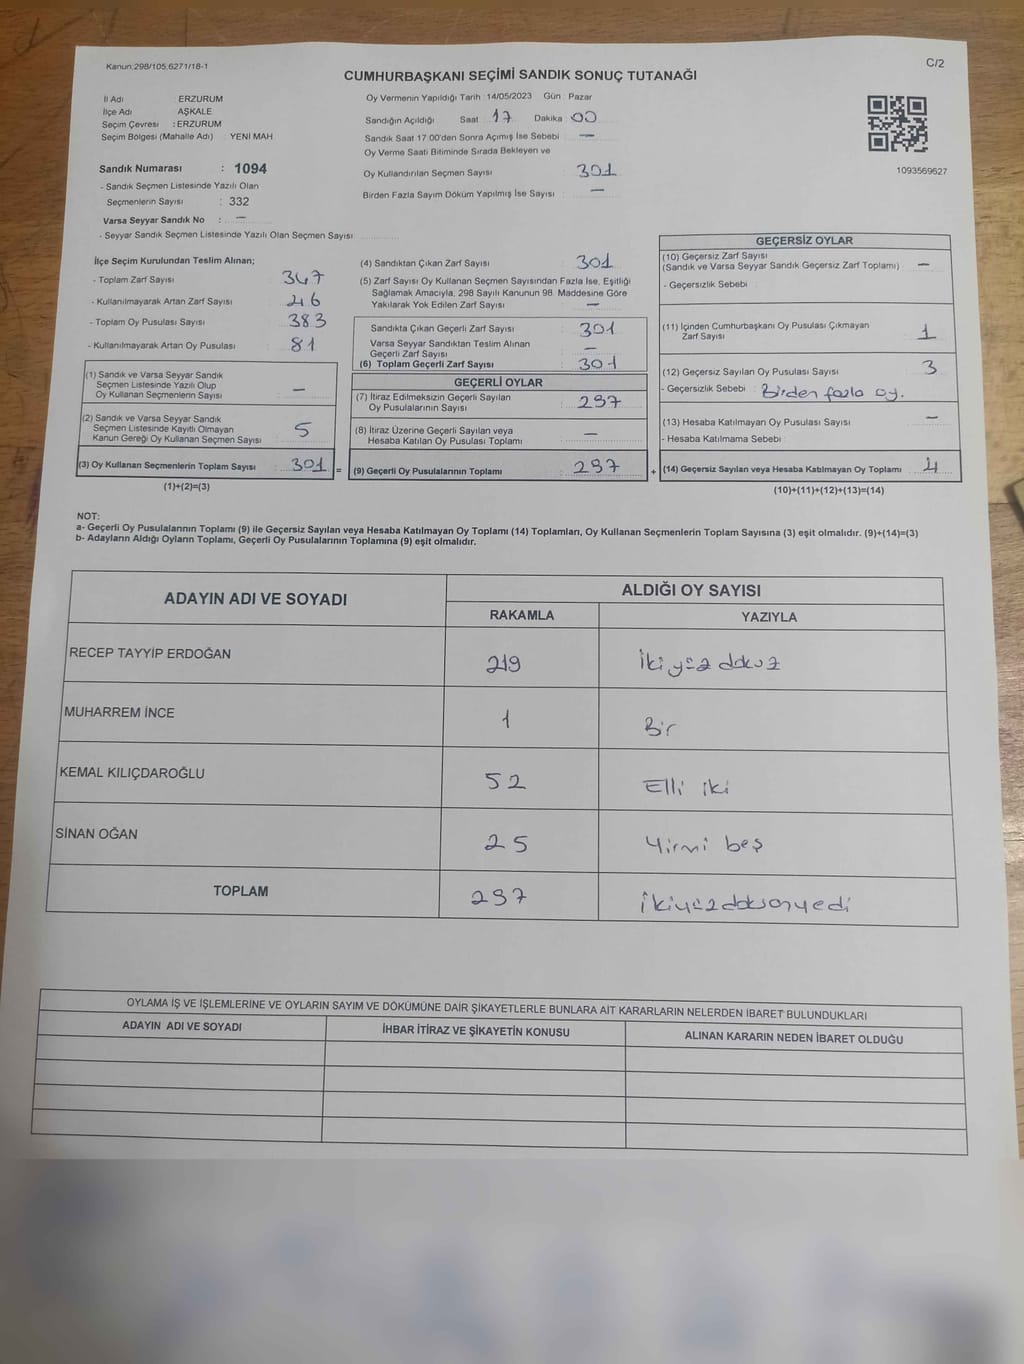 Kanun:298/105.6271/18-1
C/2
CUMHURBAŞKANI SEÇİMİ SANDIK SONUÇ TUTANAĞI
İl Adı : ERZURUM
İlçe Adı : AŞKALE
Seçim Çevresi : ERZURUM
Seçim Bölgesi (Mahalle Adı) : YENİ MAH
Sandık Numarası : 1094
- Sandık Seçmen Listesinde Yazılı Olan
Seçmenlerin Sayısı : 332
Varsa Seyyar Sandık No : —
- Seyyar Sandık Seçmen Listesinde Yazılı Olan Seçmen Sayısı
Oy Vermenin Yapıldığı Tarih : 14/05/2023 Gün : Pazar
Sandığın Açıldığı Saat 17 Dakika 00
Sandık Saat 17.00'den Sonra Açımış İse Sebebi —
Oy Verme Saati Bitiminde Sırada Bekleyen ve
Oy Kullandırılan Seçmen Sayısı : 301
Birden Fazla Sayım Döküm Yapılmış İse Sayısı : —
1093569627
İlçe Seçim Kurulundan Teslim Alınan;
- Toplam Zarf Sayısı : 347
- Kullanılmayarak Artan Zarf Sayısı : 46
- Toplam Oy Pusulası Sayısı : 383
- Kullanılmayarak Artan Oy Pusulası : 81
(1) Sandık ve Varsa Seyyar Sandık
Seçmen Listesinde Yazılı Olup
Oy Kullanan Seçmenlerin Sayısı : —
(2) Sandık ve Varsa Seyyar Sandık
Seçmen Listesinde Kayıtlı Olmayan
Kanun Gereği Oy Kullanan Seçmen Sayısı : 5
(3) Oy Kullanan Seçmenlerin Toplam Sayısı : 301 =
(1)+(2)=(3)
(4) Sandıktan Çıkan Zarf Sayısı : 301
(5) Zarf Sayısı Oy Kullanan Seçmen Sayısından Fazla İse, Eşitliği
Sağlamak Amacıyla, 298 Sayılı Kanunun 98. Maddesine Göre
Yakılarak Yok Edilen Zarf Sayısı : —
Sandıkta Çıkan Geçerli Zarf Sayısı : 301
Varsa Seyyar Sandıktan Teslim Alınan
Geçerli Zarf Sayısı : —
(6) Toplam Geçerli Zarf Sayısı : 301
GEÇERLİ OYLAR
(7) İtiraz Edilmeksizin Geçerli Sayılan
Oy Pusulalarının Sayısı : 297
(8) İtiraz Üzerine Geçerli Sayılan veya
Hesaba Katılan Oy Pusulası Toplamı : —
(9) Geçerli Oy Pusulalarının Toplamı : 297 +
GEÇERSİZ OYLAR
(10) Geçersiz Zarf Sayısı
(Sandık ve Varsa Seyyar Sandık Geçersiz Zarf Toplamı) : —
- Geçersizlik Sebebi :
(11) İçinden Cumhurbaşkanı Oy Pusulası Çıkmayan
Zarf Sayısı : 1
(12) Geçersiz Sayılan Oy Pusulası Sayısı : 3
- Geçersizlik Sebebi : Birden fazla oy.
(13) Hesaba Katılmayan Oy Pusulası Sayısı : —
- Hesaba Katılmama Sebebi :
(14) Geçersiz Sayılan veya Hesaba Katılmayan Oy Toplamı : 4
(10)+(11)+(12)+(13)=(14)
NOT:
a- Geçerli Oy Pusulalarının Toplamı (9) ile Geçersiz Sayılan veya Hesaba Katılmayan Oy Toplamı (14) Toplamları, Oy Kullanan Seçmenlerin Toplam Sayısına (3) eşit olmalıdır. (9)+(14)=(3)
b- Adayların Aldığı Oyların Toplamı, Geçerli Oy Pusulalarının Toplamına (9) eşit olmalıdır.
ADAYIN ADI VE SOYADI
ALDIĞI OY SAYISI
RAKAMLA YAZIYLA
RECEP TAYYİP ERDOĞAN 219 İkiyüz dokuz
MUHARREM İNCE 1 Bir
KEMAL KILIÇDAROĞLU 52 Elli iki
SİNAN OĞAN 25 Yirmi beş
TOPLAM 297 ikiyüzdoksanyedi
OYLAMA İŞ VE İŞLEMLERİNE VE OYLARIN SAYIM VE DÖKÜMÜNE DAİR ŞİKAYETLERLE BUNLARA AİT KARARLARIN NELERDEN İBARET BULUNDUKLARI
ADAYIN ADI VE SOYADI İHBAR İTİRAZ VE ŞİKAYETİN KONUSU ALINAN KARARIN NEDEN İBARET OLDUĞU